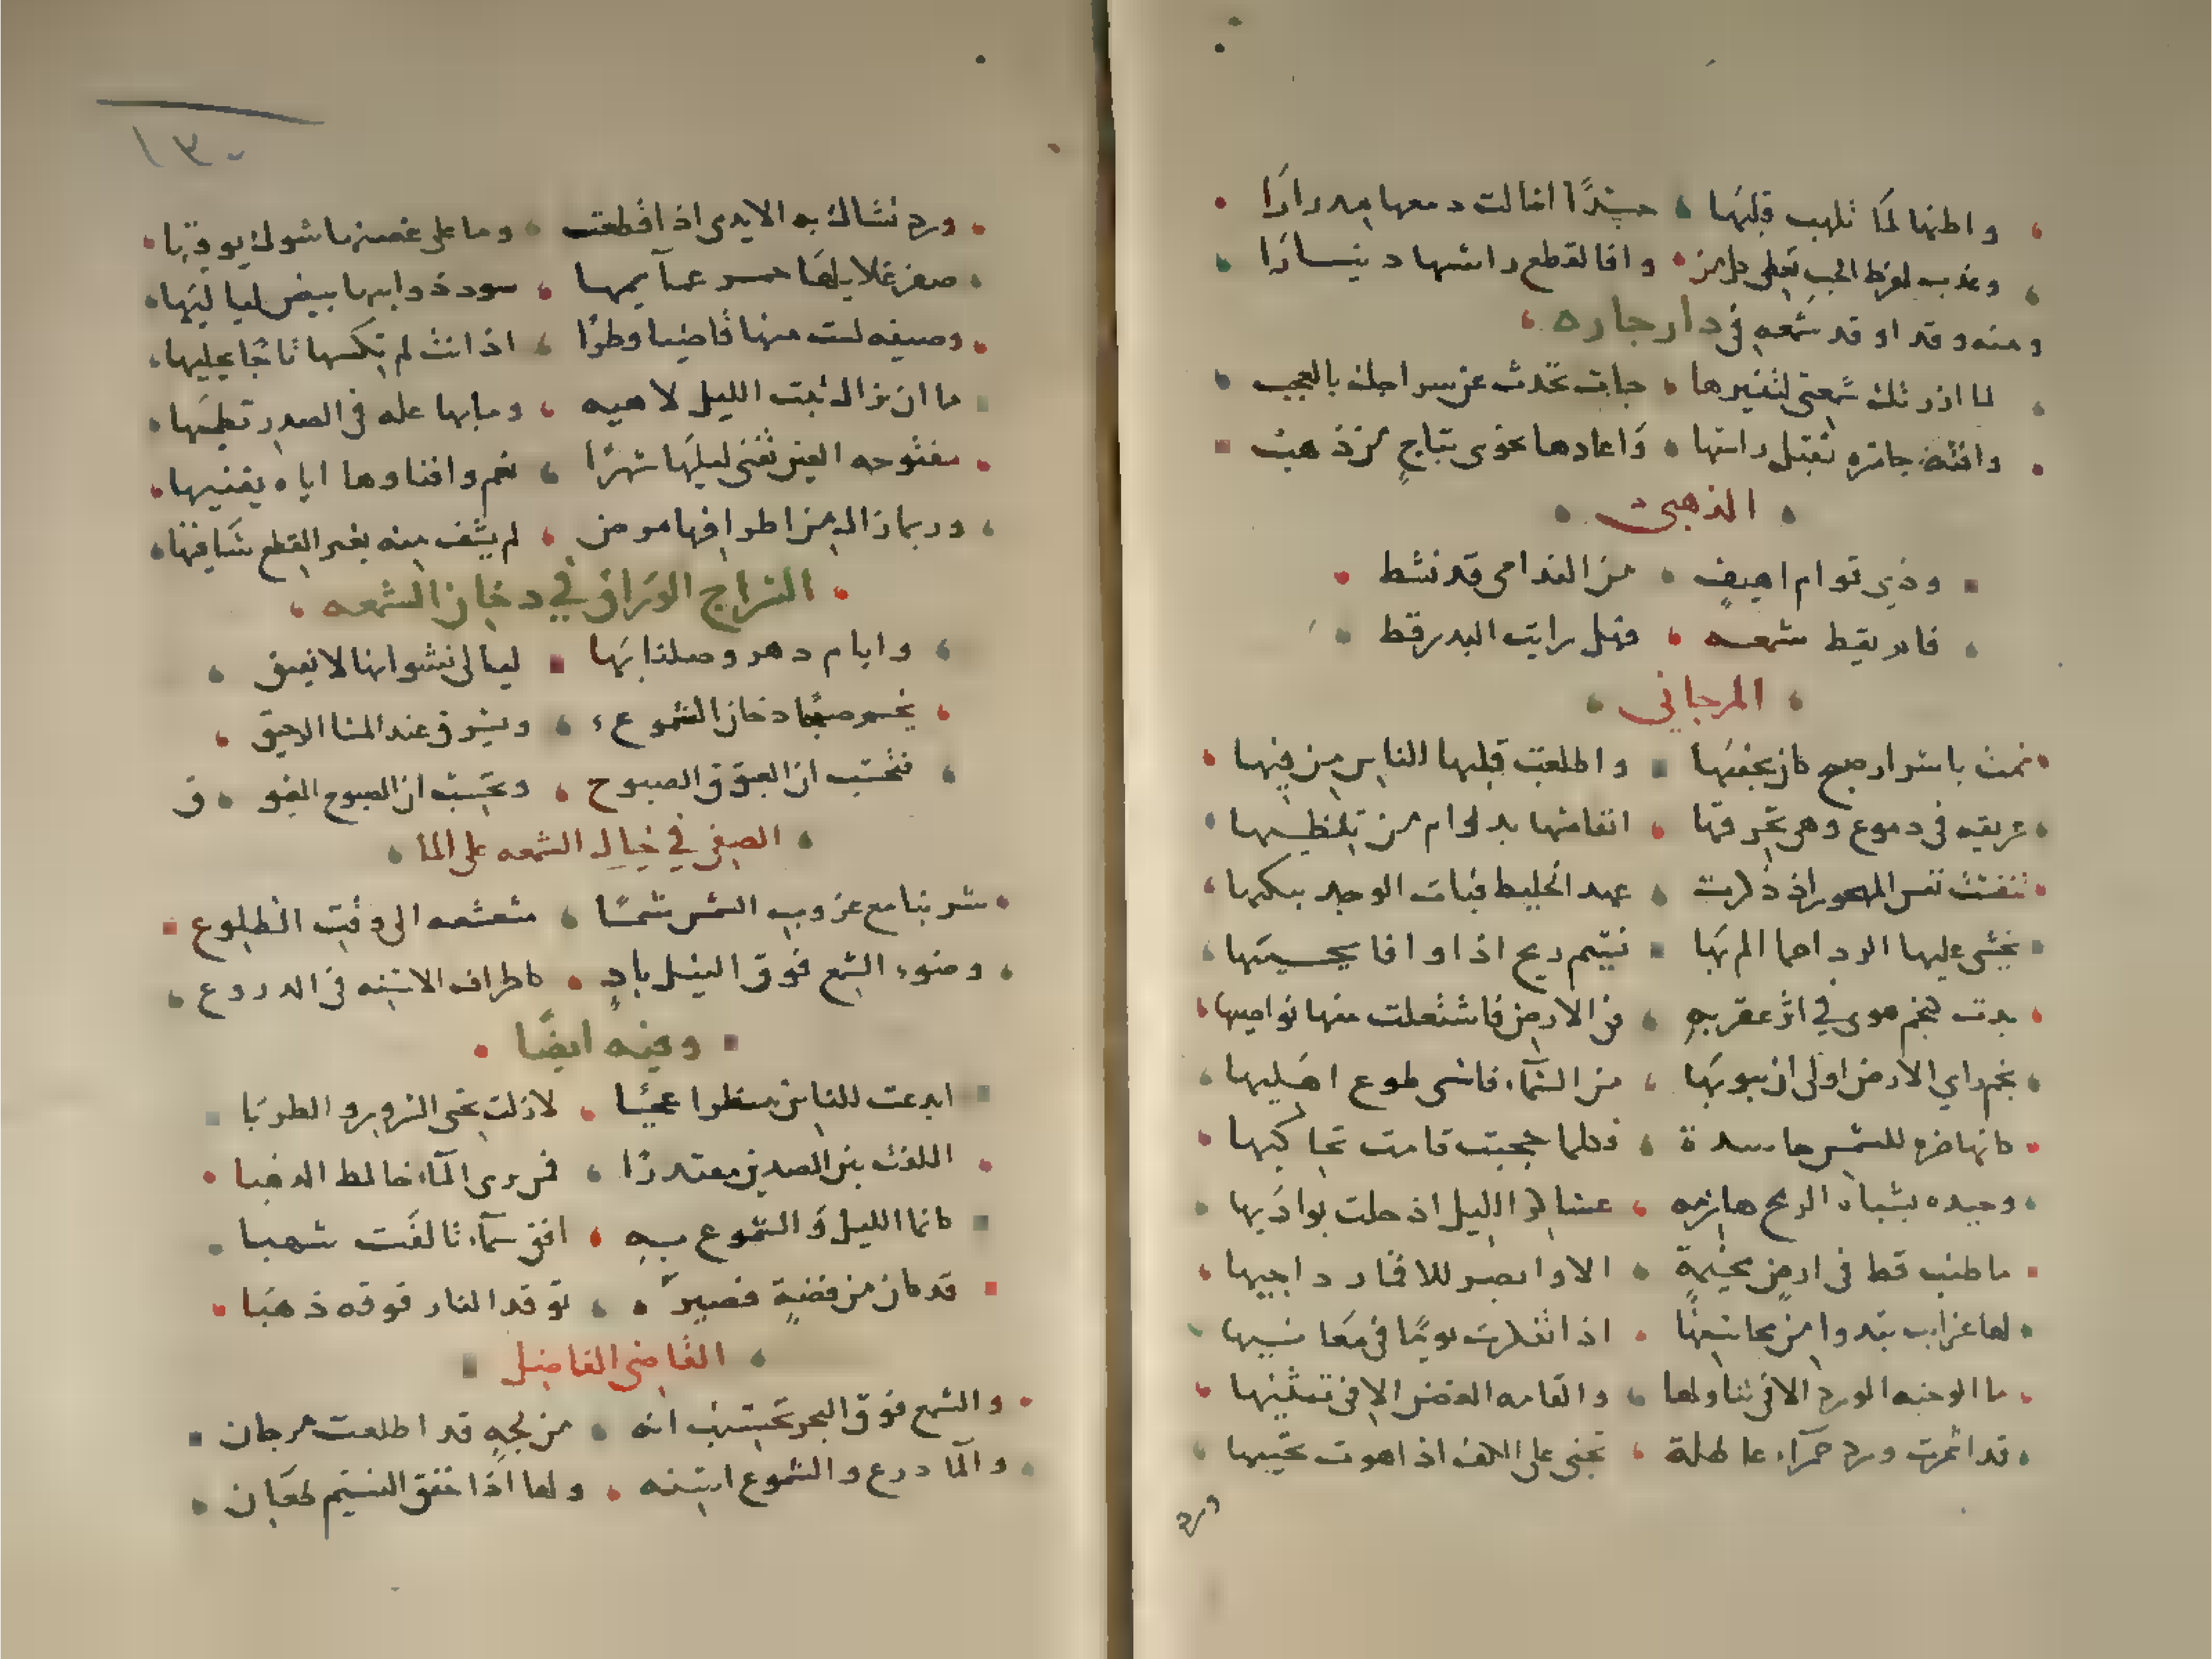 واظنها لما تلهب قلبها حسدا اسالت دمعها مدرارا
وغدت لفرط الحب تعطي كل من وافا لقطع راسها دينارا
ومنه وقد اوقد شمعه في دار جاره
لما اذرتك شمعتي لتنيرها جات تحدث عن سراجك بالعجب
وافته حاسره تقبل راسها واعادها نحوى بتاج من ذهب
الذهبي
وذي قوام اهيف من الندامى قد نشط
قام يقط شمعه فهل رايت البدر قط
المرجاني
نمت باسرار صبح كان يخفيها واطلعت قلبها للناس من فيها
غريقه في دموع وهي تحرقها انفاسها بدوام من تلظيها
تنفست نفس المهجور اذ ذكرت عهد الخليط فبات الوجد يبكيها
يخشى عليها الردا مهما الم بها نسيم ريح اذا وافا يحييها
بدت كنجم هوى في اثر عفريه في الارض فاشتعلت منها نواصيها
نجم راي الارض اولى ان يبوبها من السماء فامسى طوع اهليها
كانها ضره للشمس حاسدة فكلما حجبت قامت تحاكيها
وحيده بشباة الرمح هازمه عساكر الليل اذ حلت بواديها
ما طنبت قط في ارض مخيمة الا واقمر للابصار داجيها
لها غرايب تبدوا من محاسنها اذا تفكرت يوما في معانيها
ما الوجنه الورد الا في تناولها والقامه الغصن الا في تثنيها
قد اثمرت ورد حمراء عاطلة تجنى على الكف اذ اهوت تحييها
ورد
١٣٠
ورد تشاك به الايدي اذا قطعت وما على غصنها شوك يوقيها
صفر غلايلها حمر عمايمها سود ذوايبها بيض لياليها
وصيفه لست منها قاضيا وطرا اذ انت لم تكسها تاجا يحليها
ما ان تزال تبيت الليل لاهيه وما بها علة في الصدر تظميها
مفتوحه العين تفني ليلها سهرا نعم وافناوها اياه يفنيها
وربما نال من اطرافها مرض لم يشف منه بغير القطع شافيها
السراج الوراق في دخان الشمعه
وايام دهر وصلنا بها ليالي نشوانها لا يفيق
يخمر صبحا دخان الشموع ويشرق عند المسا الرحيق
فنحسب ان الغبوق الصبوح ونحسب ان الصبوح الغبوق
الصفي في خيال الشمعه على الما
شربنا مع غروب الشمس شمسا مشعشعه الى وقت الطلوع
وضوء الشمع فوق النيل باد كاطراف الاسنه في الدروع
وفيه ايضا
ابدعت للناس منظرا عجبا لا زلت تحيي السرور والطربا
الفت بين الضدين مقتدرا فمن راى الماء خالط اللهبا
كانما الليل والشموع به افق سماء تالقت شهبا
قد كان من فضة فصير توقد النار فوقه ذهبا
القاضي الفاضل
والشمع فوق البحر تحسب انه من لجه قد اطلعت مرجان
والما درع والشموع اسنه ولها اذا خفق النسيم طعان